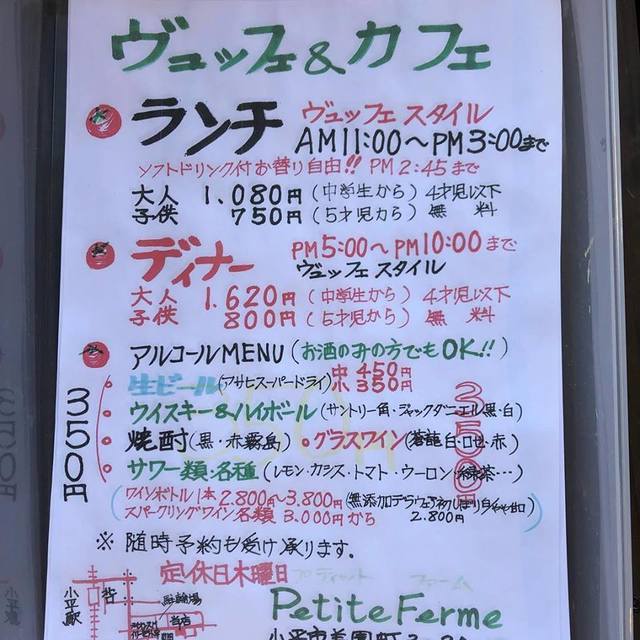 ヴュッフェ&カフェ
ランチ ヴュッフェ スタイル
AM11:00〜PM3:00まで
ソフトドリンク付お替り自由!! PM2:45まで
大人 1.080円(中学生から) 4才児以下
子供 750円(5才児から) 無料
ディナー PM5:00〜PM10:00まで
ヴュッフェ スタイル
大人 1.620円(中学生から) 4才児以下
子供 800円(5才児から) 無料
アルコールMENU(お酒のみの方でもOK!!)
生ビール(アサヒスーパードライ) 中450円 小350円
ウイスキー&ハイボール(サントリー角・ジャックダニエル黒・白)
焼酎(黒・赤霧島) グラスワイン(白・ロゼ・赤)
サワー類・各種(レモン・カシス・トマト・ウーロン・緑茶…)
350円
350円
ワインボトル1本2.800〜3.800円
スパークリングワイン各類 3.000円から
2.800円
※ 随時予約も受け承ります。
定休日木曜日
プティット ファーム
小平駅
Petite Ferme
小平市美園町